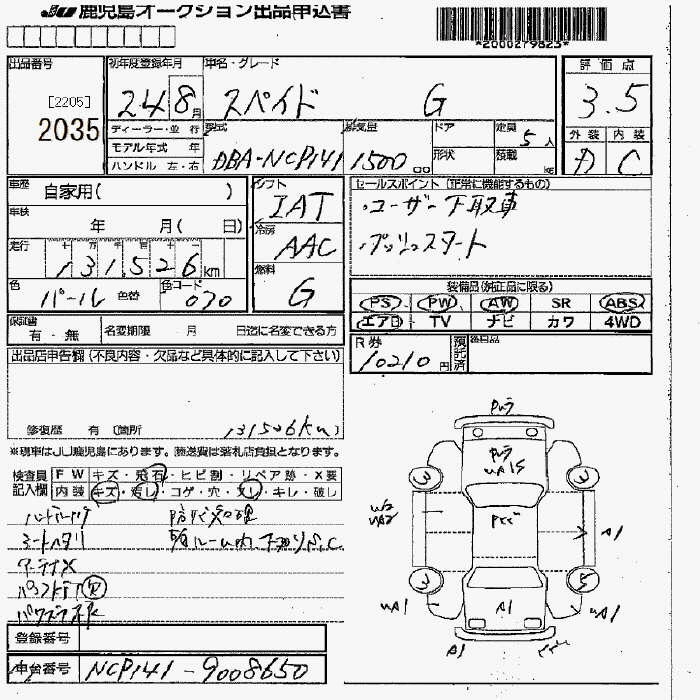 JU 鹿児島オークション出品申込書
*2000279823*
出品番号
[2205]
2035
初年度登録年月
24 8月
車名・グレード
スペイド G
評価点
3.5
ディーラー・並行
モデル年式 年
ハンドル 左・右
型式
DBA-NCP141
排気量
1500 cc
ドア
形状
定員
5 人
積載
kg
外装 内装
A C
車歴
自家用( )
車検
年 月( 日)
走行
十 万 千 百 十 一
131526km
色
パール 色替
色コード
070
シフト
IAT
冷房
AAC
燃料
G
セールスポイント (正常に機能するもの)
・ユーザー下取車
・プッシュスタート
装備品(純正品に限る)
PS PW AW SR ABS
エアB TV ナビ カワ 4WD
保証書
有・無
名変期限 月 日迄に名変できる方
R券
10210円
預託済
後日品
出品店申告欄(不良内容・欠品など具体的に記入して下さい)
修復歴 有 (箇所 131526km)
※現車はJU鹿児島にあります。陸送費は落札店負担となります。
検査員記入欄
FW キズ・飛石・ヒビ割・リペア跡・X要
内装 キズ・汚レ・コゲ・穴・スレ・キレ・破し
シートヘタリ
登録番号
車台番号
NCP141-9008650
3
3
3
5
UA15
A1
UA1
A1
UA1
A1